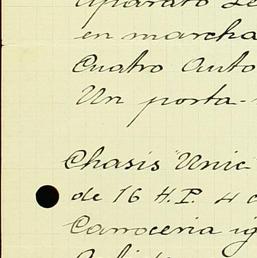 aparato
en marcha
Cuatro auto
Un porta-
Chasis "Unic
de 16 H.P. 4 c
Carroceria ig